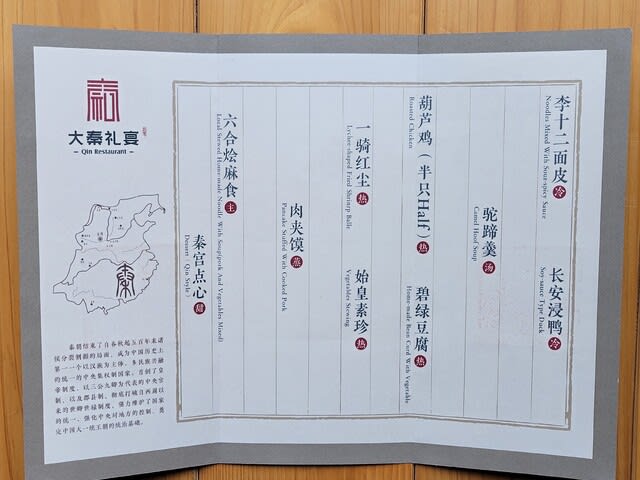 李十二面皮 冷
Noodles Mixed With Sour-spicy Sauce
长安浸鸭 冷
Soy-sauce Type Duck
驼蹄羹 汤
Camel Hoof Soup
葫芦鸡（半只Half）热
Roasted Chicken
碧绿豆腐 热
Home-made Bean Curd With Vegetable
一骑红尘 热
Lychee-shaped Fried Shrimp Balle
始皇素珍 热
Vegetables Stewing
肉夹馍 蒸
Pancake Stuffed With Cooked Pork
六合烩麻食 主
Local Stewed Home-made Noodle With Soup(pork And Vegetables Mixed)
秦宫点心 甜
Dessert (Qin Style)
大秦礼宴
– Qin Restaurant –
秦
秦朝结束了自春秋起五百年来诸
侯分裂割据的局面，成为中国历史上
第一一个以汉族为主体、多民族共融
的统一的中央集权制国家。首创了皇
帝制度、以三公九卿为代表的中央官
制，以及郡县制，彻底打破自西周以
来的世卿世禄制度，强力维护了国家
的统一、强化中央对地方的控制，奠
定中国大一统王朝的统治基础。